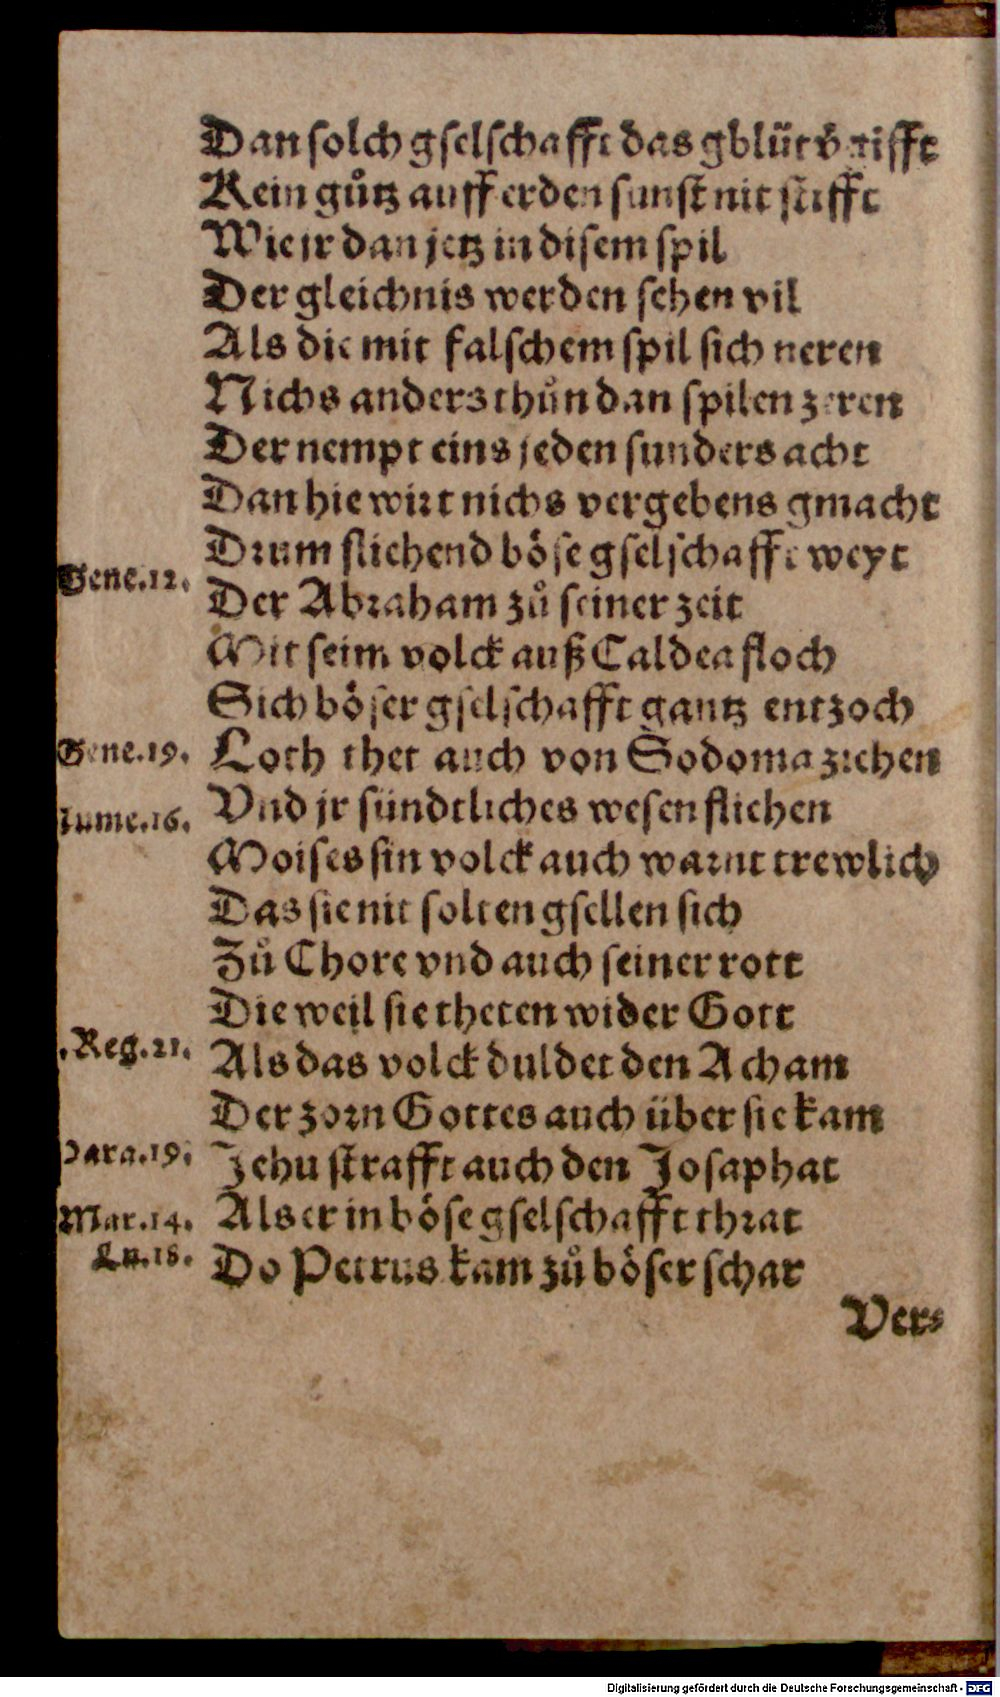 Dan solch gselschafft das gblüt v̈gifft
Kein gůtz auff erden sunst nit stifft
Wie jr dan jetz in disem spil
Der gleichnis werden sehen vil
Als die mit falschem spil sich neren
Nichs anders thůn dan spilen zeren
Der nempt eins jeden sunders acht
Dan hie wirt nichs vergebens gmacht
Drum fliehend böse gselschafft weyt
Gene.12.
Der Abraham zů seiner zeit
Mit seim volck auß Caldea floch
Sich böser gselschafft gantz entzoch
Gene.19. Loth thet auch von Sodoma ziehen
Vnd jr sündtliches wesen fliehen
Nume.16.
Moises sin volck auch warnt trewlich
Das sie nit solten gsellen sich
Zů Chore vnd auch seiner rott
Die weil sie theten wider Gott
.Reg.21. Als das volck duldet den Acham
Der zorn Gottes auch über sie kam
para.19. Jehu strafft auch den Josaphat
Mar.14. Als er in böse gselschafft thrat
Lu.18. Do Petrus kam zů böser schar
Ver⸗
Digitalisierung gefördert durch die Deutsche Forschungsgemeinschaft - DFG